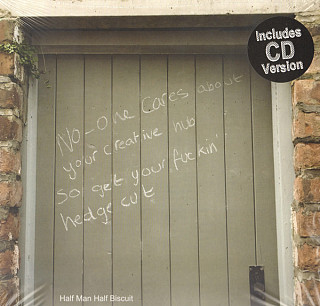 Includes
CD
Version
No-one cares about
your creative hub
so get your fuckin'
hedge cut
Half Man Half Biscuit